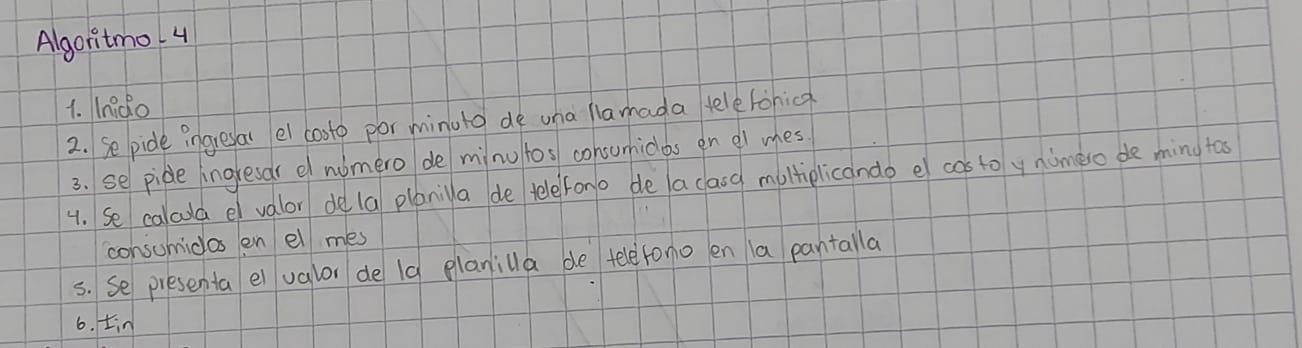 Algoritmo-4
1. Inicio
2. Se pide ingresar el costo por minuto de una llamada telefónica
3. se pide ingresar el número de minutos consumidos en el mes.
4. Se calcula el valor de la planilla de teléfono de la casa multiplicando el costo y número de minutos
consumidos en el mes
5. Se presenta el valor de la planilla de teléfono en la pantalla
6. Fin